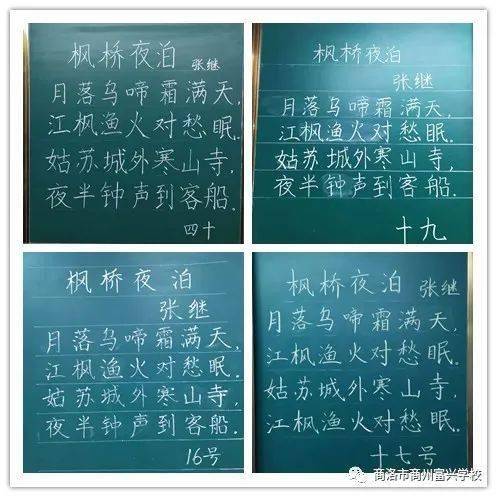 枫桥夜泊 张继
月落乌啼霜满天,
江枫渔火对愁眠.
姑苏城外寒山寺,
夜半钟声到客船.
四十
枫桥夜泊
张继
月落乌啼霜满天,
江枫渔火对愁眠.
姑苏城外寒山寺,
夜半钟声到客船.
十九
枫桥夜泊
张继
月落乌啼霜满天,
江枫渔火对愁眠.
姑苏城外寒山寺,
夜半钟声到客船.
16号
枫桥夜泊 张继
月落乌啼霜满天,
江枫渔火对愁眠.
姑苏城外寒山寺,
江枫渔火对愁眠.
十七号
商洛市商州富兴学校